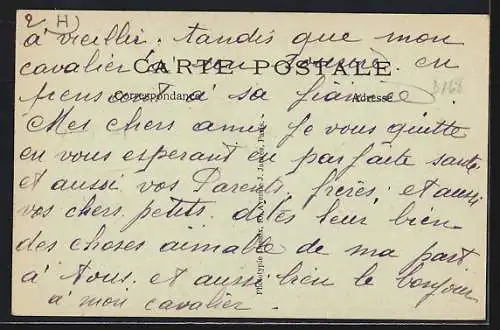 2 H)
à vieillir. tandis que mon
cavalier a son tourné. en
CARTE POSTALE
pensant à sa fiancée
Correspondance
Adresse
D168
Mes chers amis Je vous quitte
en vous esperant en parfaite santé
et aussi vos Parents, frères. et aussi
vos chers petits. dites leur bien
des choses aimable de ma part
à tous. et aussi bien le bonjour
à mon cavalier.
Phototypie J. James, Paris